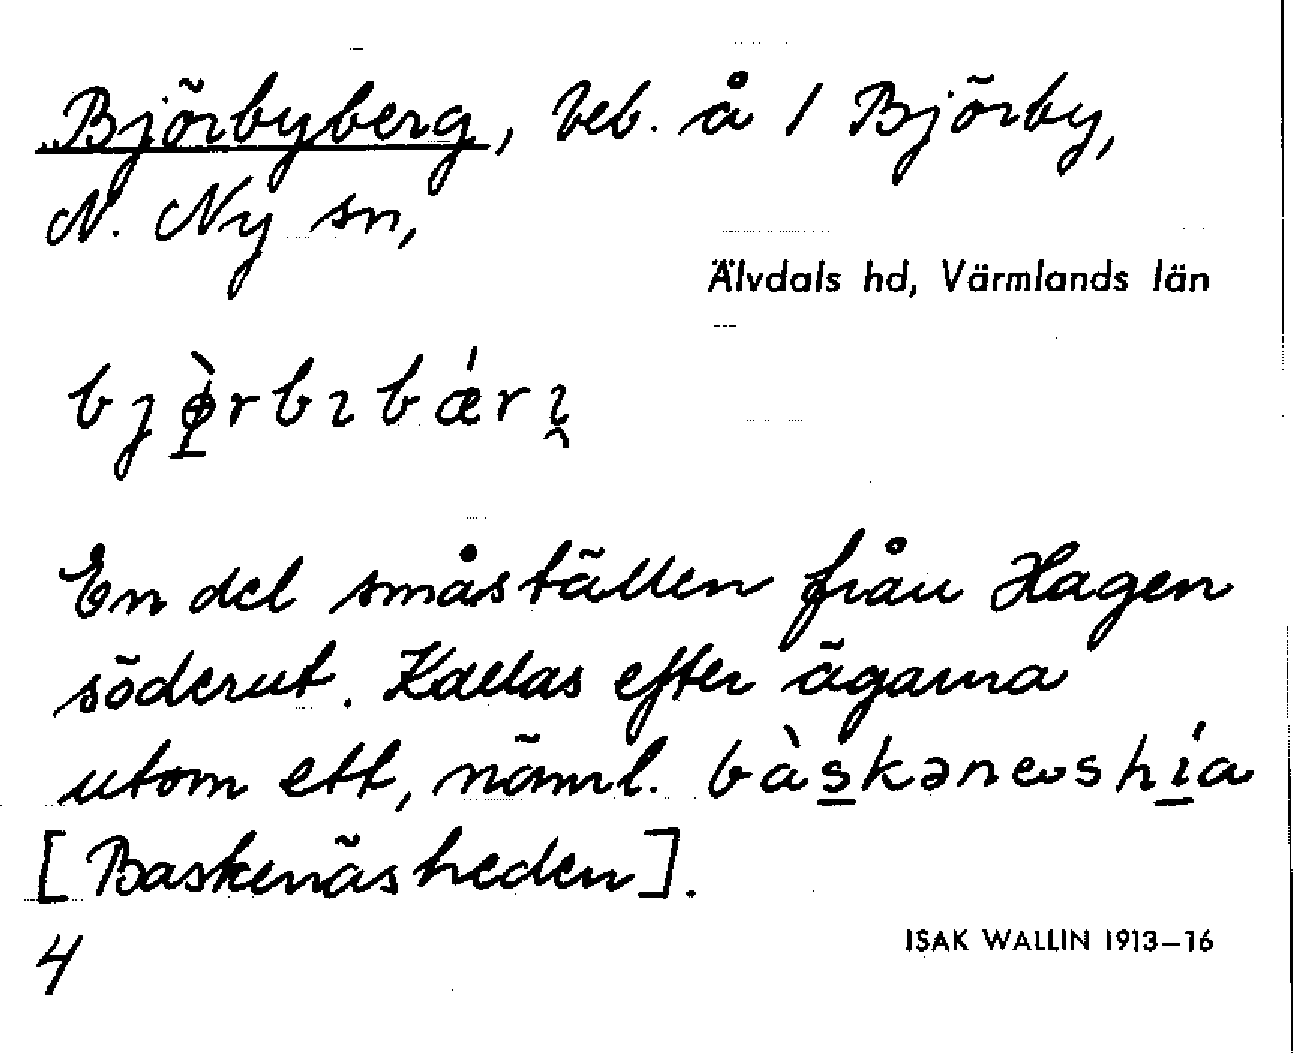 Björbyberg, beb. å 1 Björby,
N. Ny sn,
Älvdals hd, Värmlands län
bjø̀rbıbǽrı̯
En del småställen från Hagen
söderut. Kallas efter ägarna
utom ett, näml. bàs̲kəneshí̲a
[Baskenäsheden].
4
ISAK WALLIN 1913–16